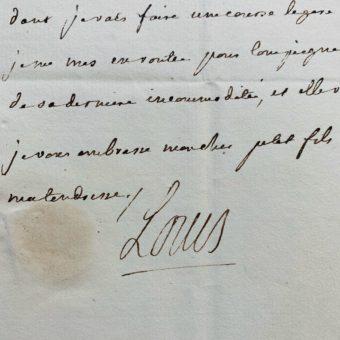 dont je vais faire une course legere
je me mes en routte pour Compiegne
de sa derniere incommodité, et elle v
je vous embrasse mon cher petit fils
ma tendresse./
Louis